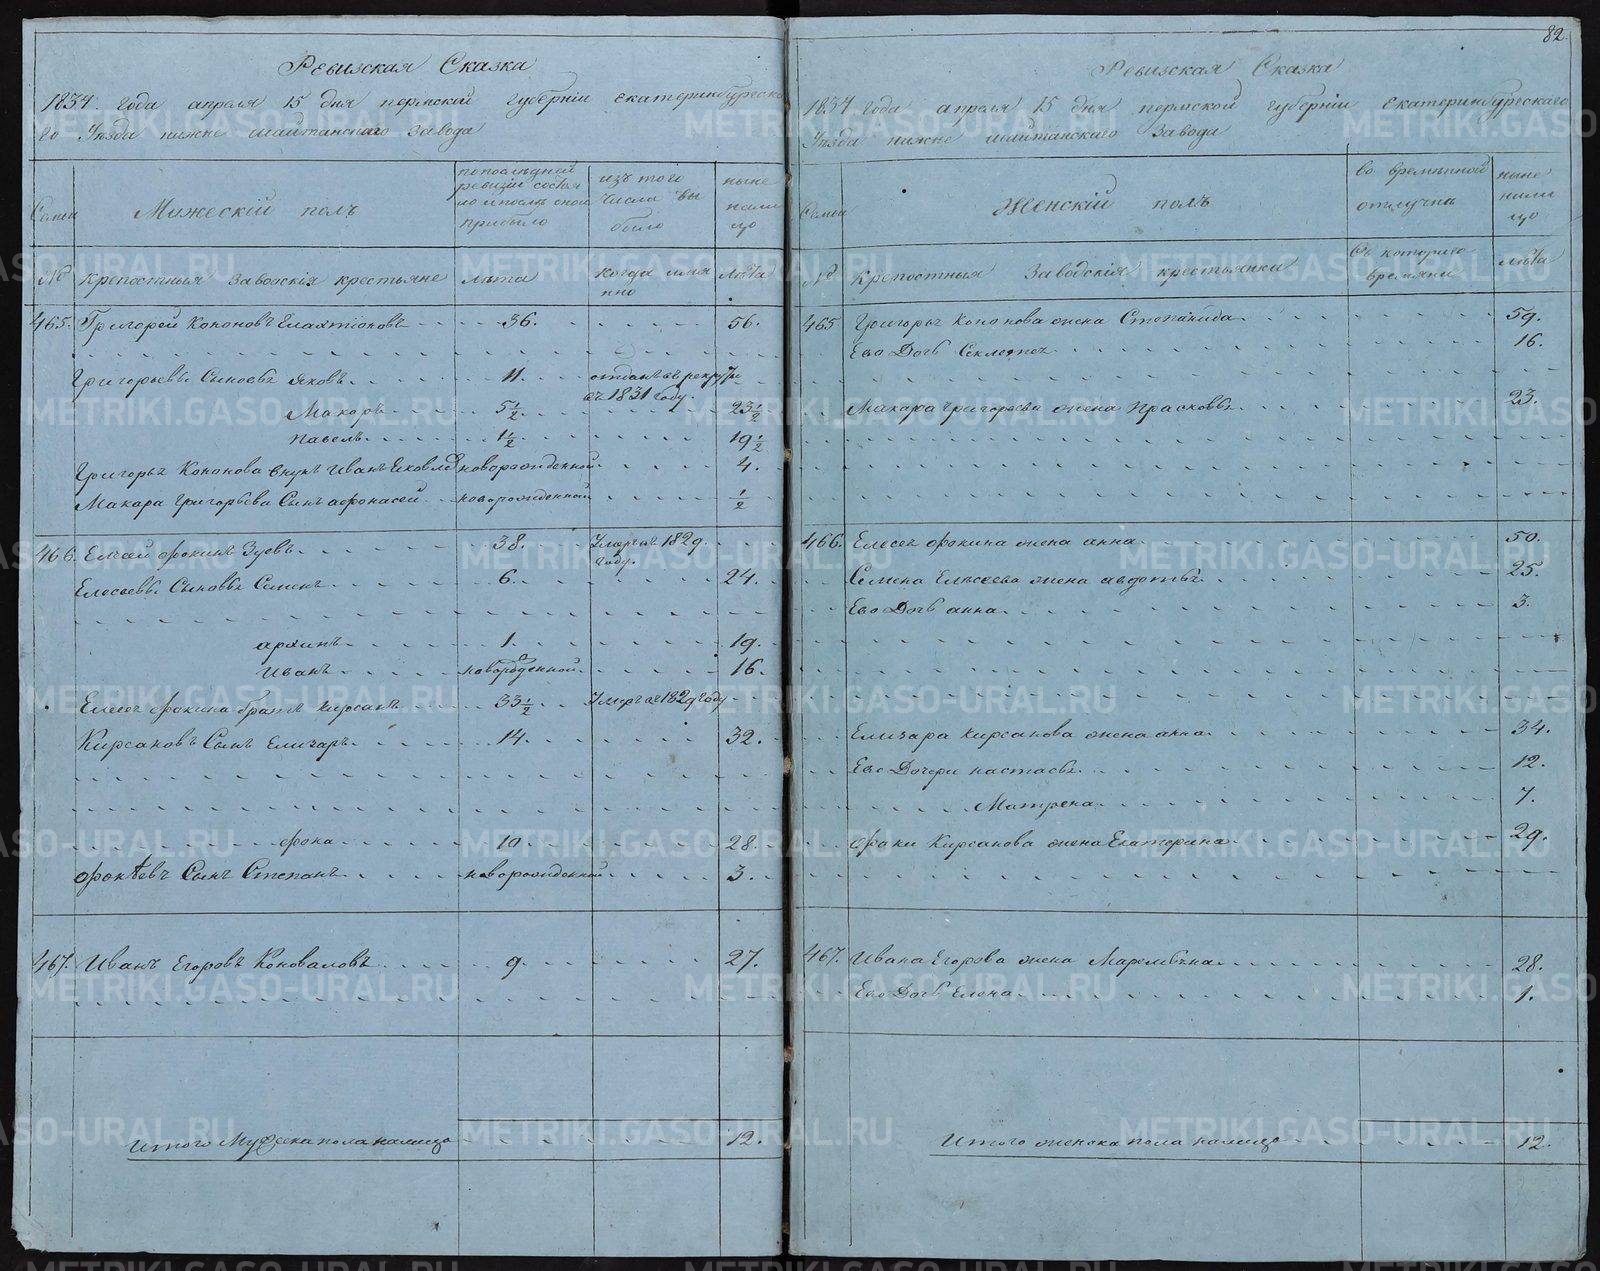 82.
Ревизская Сказка
1834. года апреля 15 дня пермской губерніи екатеринбургска
го уѣзда нижне шайтанскаго завода
Семьи
Мужескій полъ
по последней
ревизіи состоя
ло и послѣ оной
прибыло
изъ того
числа вы
было
ныне
нали
цо
№
Крепостныя заводскія крестьяне
лѣта
когда имя
нно
лѣта
465. Григорей Кононовъ Елахтіоновъ 36. 56.
Григорьевы Сыновья Яковъ 11. отданъ въ рекруты
въ 1831 году
Макаръ 5½ 23½
павелъ 1½ 19½
Григорья Кононова внукъ Иванъ Яковлев новорожденной 4.
Макара Григорьева Сынъ афонасей новорожденной ½
466. Елисей фокинъ Зуевъ 38. Умеръ въ 1829.
году
Елесеевы Сыновья Семенъ 6. 24.
архипъ 1. 19.
иванъ новорожденной 16.
Елесея фокина братъ кирсанъ 33½ Умеръ въ 1829 году
Кирсановъ Сынъ Елизаръ 14. 32.
фока 10 28.
фокѣевъ Сынъ Степанъ новорожденной 3.
467. Иванъ Егоровъ Коноваловъ 9. 27.
Итого Мужеска пола налицо 12.
Ревизская Сказка
1834 года апреля 15 дня пермской губерніи екатеринбургскаго
Уѣзда нижне шайтанскаго завода
Семьи
Женскій полъ
во временной
отлучкѣ
ныне
нали
цо
№
Крепостныя заводскія крестьянки
Съ котораго
времяни
лѣта
465 Григорья Кононова жена Степанида 59.
Ево Дочь Секлетея 16.
Макара григорьева жена прасковья 23.
466. Елесея фокина жена анна 50.
Семена Елисеева жена авдотья 25.
Ево Дочь анна 3.
Елизара кирсанова жена анна 34.
Ево Дочери настасья 12.
Матрена 7.
фоки Кирсанова жена Екатерина 29.
467. Ивана Егорова жена Маремьяна 28.
Ево Дочь Елена 1.
Итого женска пола налицо 12.
METRIKI.GASO-URAL.RU